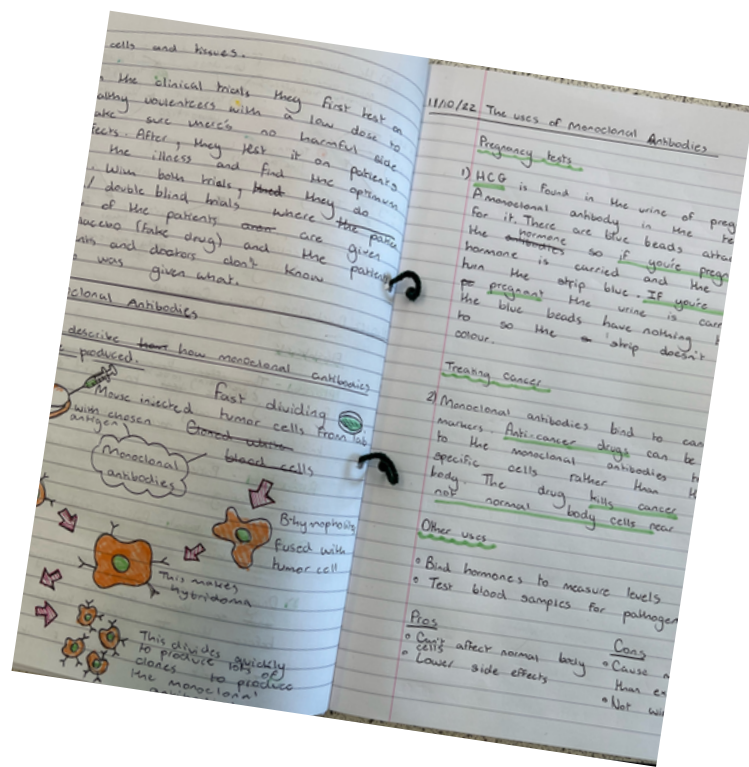 cells and tissues.
the clinical trials they first test on
althy vounteers with a low dose to
ake sure there's no harmful side
fects. After, they test it on patients
the illness and find the optimum
. With both trials, they do
/ double blind trials where the patie
of the patients are given
lacebo (fake drug) and the patient
nts and doctors don't know
was given what.
clonal Antibodies
describe how monoclonal antibodies
produced.
Mouse injected
with chosen
antigen
Fast dividing
tumor cells from lab
Cloned white
blood cells
Monoclonal
antibodies
B-lymphocyte
Fused with
tumor cell
This makes
hybridoma
This divides quickly
to produce lots of
clones to produce
the monoclonal
11/10/22 The uses of Monoclonal Antibodies
Pregnancy tests
1) HCG is found in the urine of preg
A monoclonal antibody in the te
for it. There are blue beads attac
the hormone so if you're pregn
hormone is carried and the
turn the strip blue. If you're
pregnant the urine is carr
the blue beads have nothing t
to so the strip doesn't
colour.
Treating cancer
2) Monoclonal antibodies bind to can
markers. Anti-cancer drugs can be
to the monoclonal antibodies t
specific cells rather than th
body. The drug kills cancer
not normal body cells near
Other uses
• Bind hormones to measure levels
• Test blood samples for pathogen
Pros
• Can't affect normal body
cells
• Lower side effects
Cons
• Cause m
than ex
• Not wi